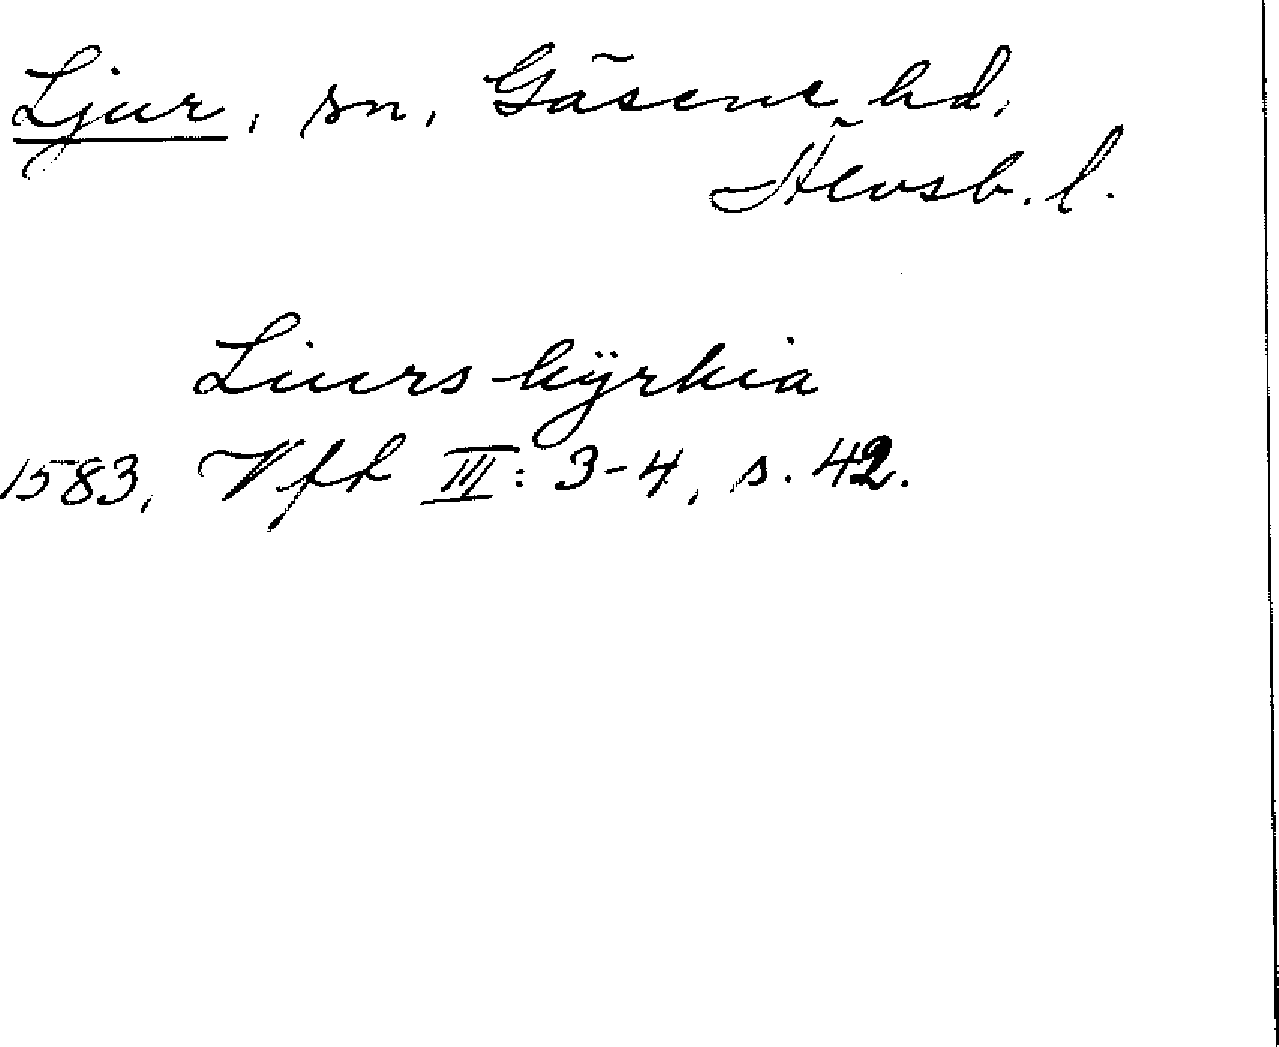 Ljur, sn, Gäsene hd,
Älvsb. l.
Liurs kÿrkia
1583, Vft III: 3-4, s. 42.